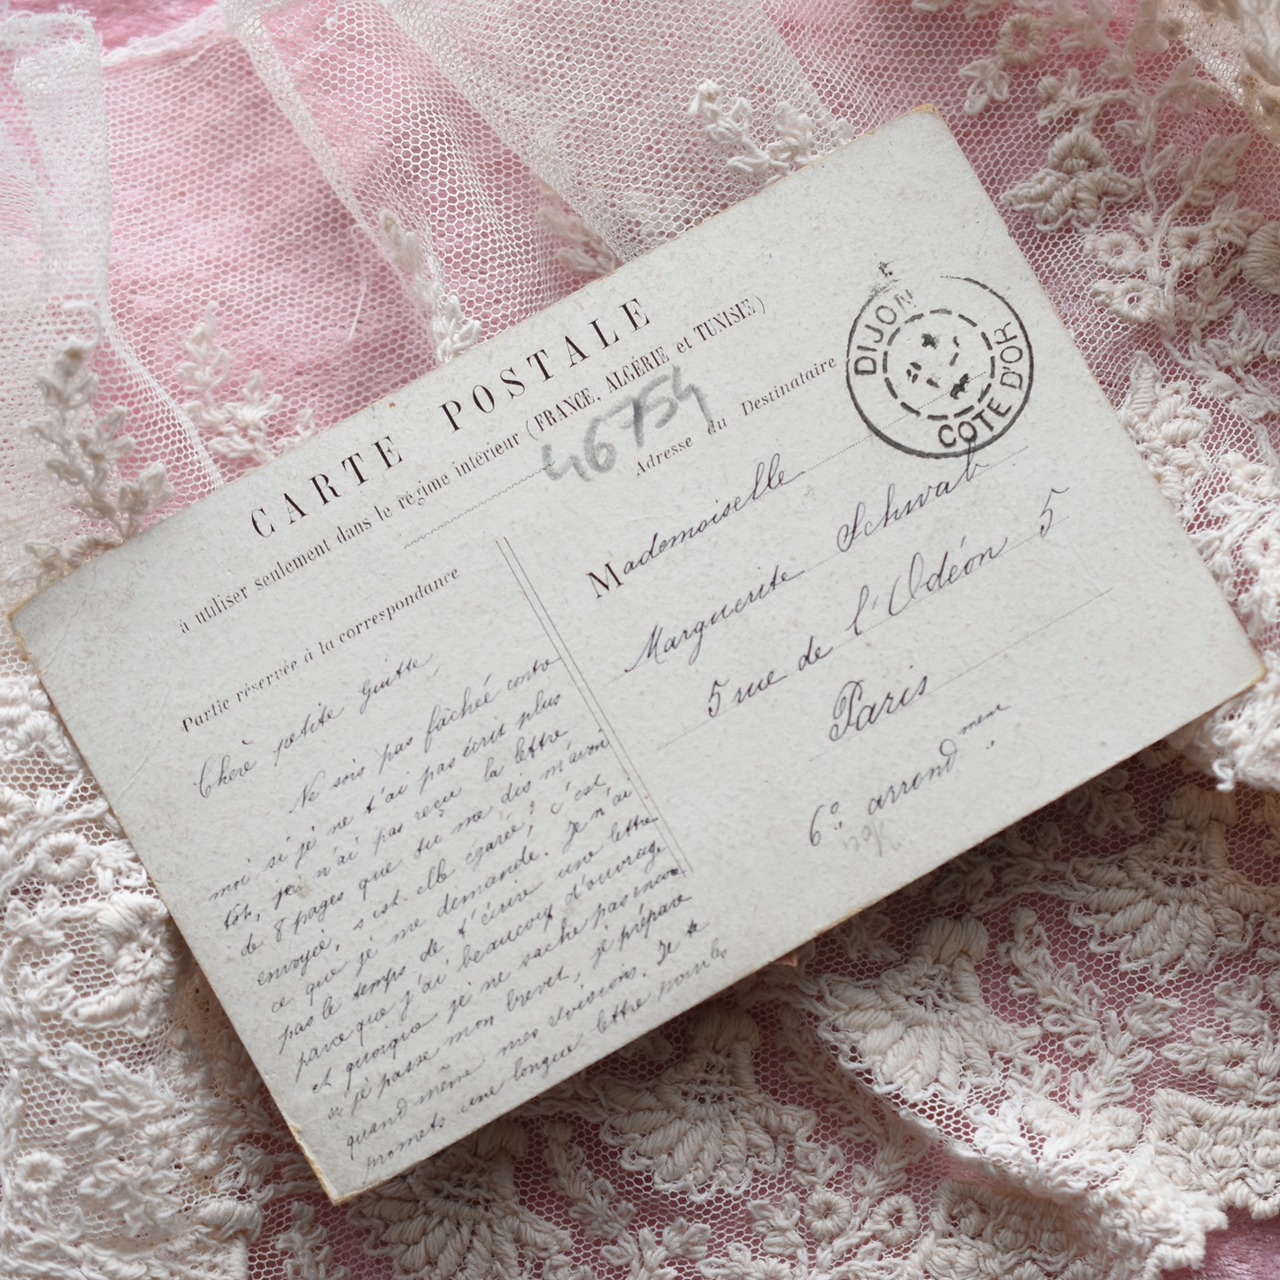 CARTE POSTALE
à utiliser seulement dans le régime intérieur (FRANCE, ALGÉRIE et TUNISIE)
46754
Partie réservée à la correspondance
Adresse du Destinataire
DIJON
COTE D'OR
Chère petite Guitte,
Ne sois pas fâcheé contre
moi si je ne t'ai pas écrit plus
tôt, je n'ai pas reçu la lettre
de 8 pages que tu me dis m'avoir
envoyée, s'est-elle égarée? c'est
ce que je me demande. Je n'ai
pas le temps de t'écrire une lettre
parce que j'ai beaucoup d'ouvrage
et quoique je ne sache pas encore
si je passe mon brevet, je prépare
quand même mes révisions. Je te
promets une longue lettre pour les
Mademoiselle
Marguerite Schwab
5 rue de l'Odéon 5
Paris
6e arrondmene